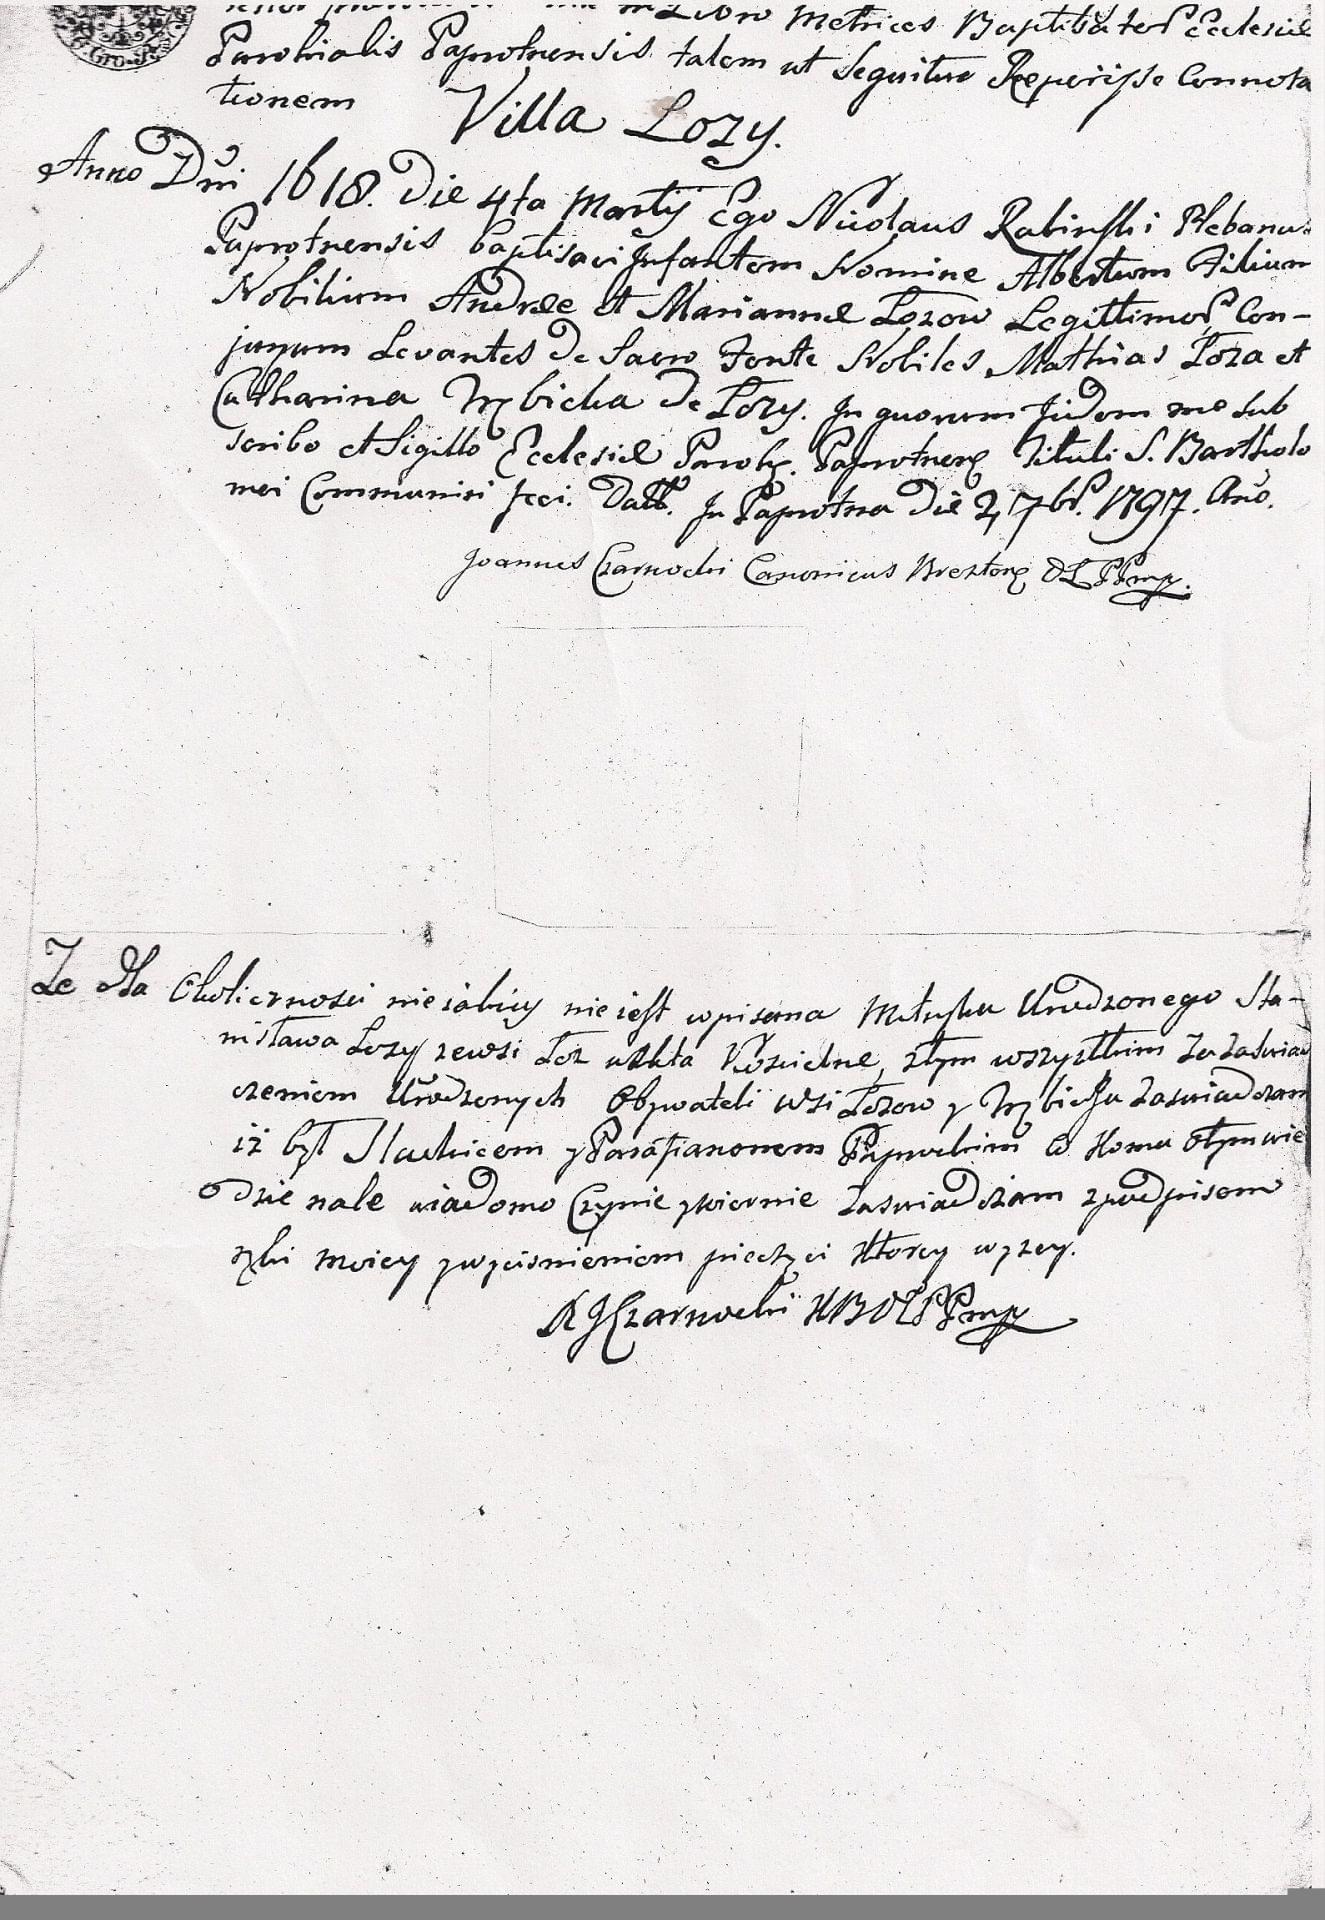 in Libro Metrices Baptisator Ecclesiæ
Parohialis Paprotnensis talem ut Sequitur Reperiisse Connota
tionem Villa Łozy.
Anno Dni 1618. Die 4ta Martij Ego Nicolaus Rabinski Plebanus
Paprotnensis baptisavi Infantem Nomine Albertum Filium
Nobilium Andreæ et Mariannæ Łozow Legittimor Con-
jugum Levantes de Sacro Fonte Nobiles Mathias Łoza et
Catharina Trębicka de Łozy. In quorum Fidem me sub
scribo et Sigillo Ecclesiæ Paroh. Paprotnen Tituli S. Bartholo
mei Communiri feci. Datt. In Paprotna Die 2 7br. 1797. Ano.
Joannes Czarnocki Canonicus Bresten PPmp.
Że dla Okolicznosci nieiakiey nie iest wpisana Metryka Urodzonego Sta-
nisława Łozy zewsi Łoz w Akta Koscielne, ztym wszystkim za zaswiad
czeniem Urodzonych Obywateli wsi Łozow y Trębicka zaswiadczam
iż był Slachicem y Parafianonem Paprockim Co Komu otym wie
dzie nale wiadomo Czynie y wiernie zaswiadczam zpodpisem
ręki moiey y wycisnieniem pieczęci Ktorey wyzey.
X J Czarnocki KB PPmp